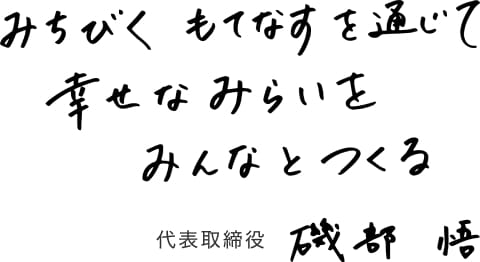 みちびく もてなすを通じて
幸せなみらいを
みんなとつくる
代表取締役 磯部 悟